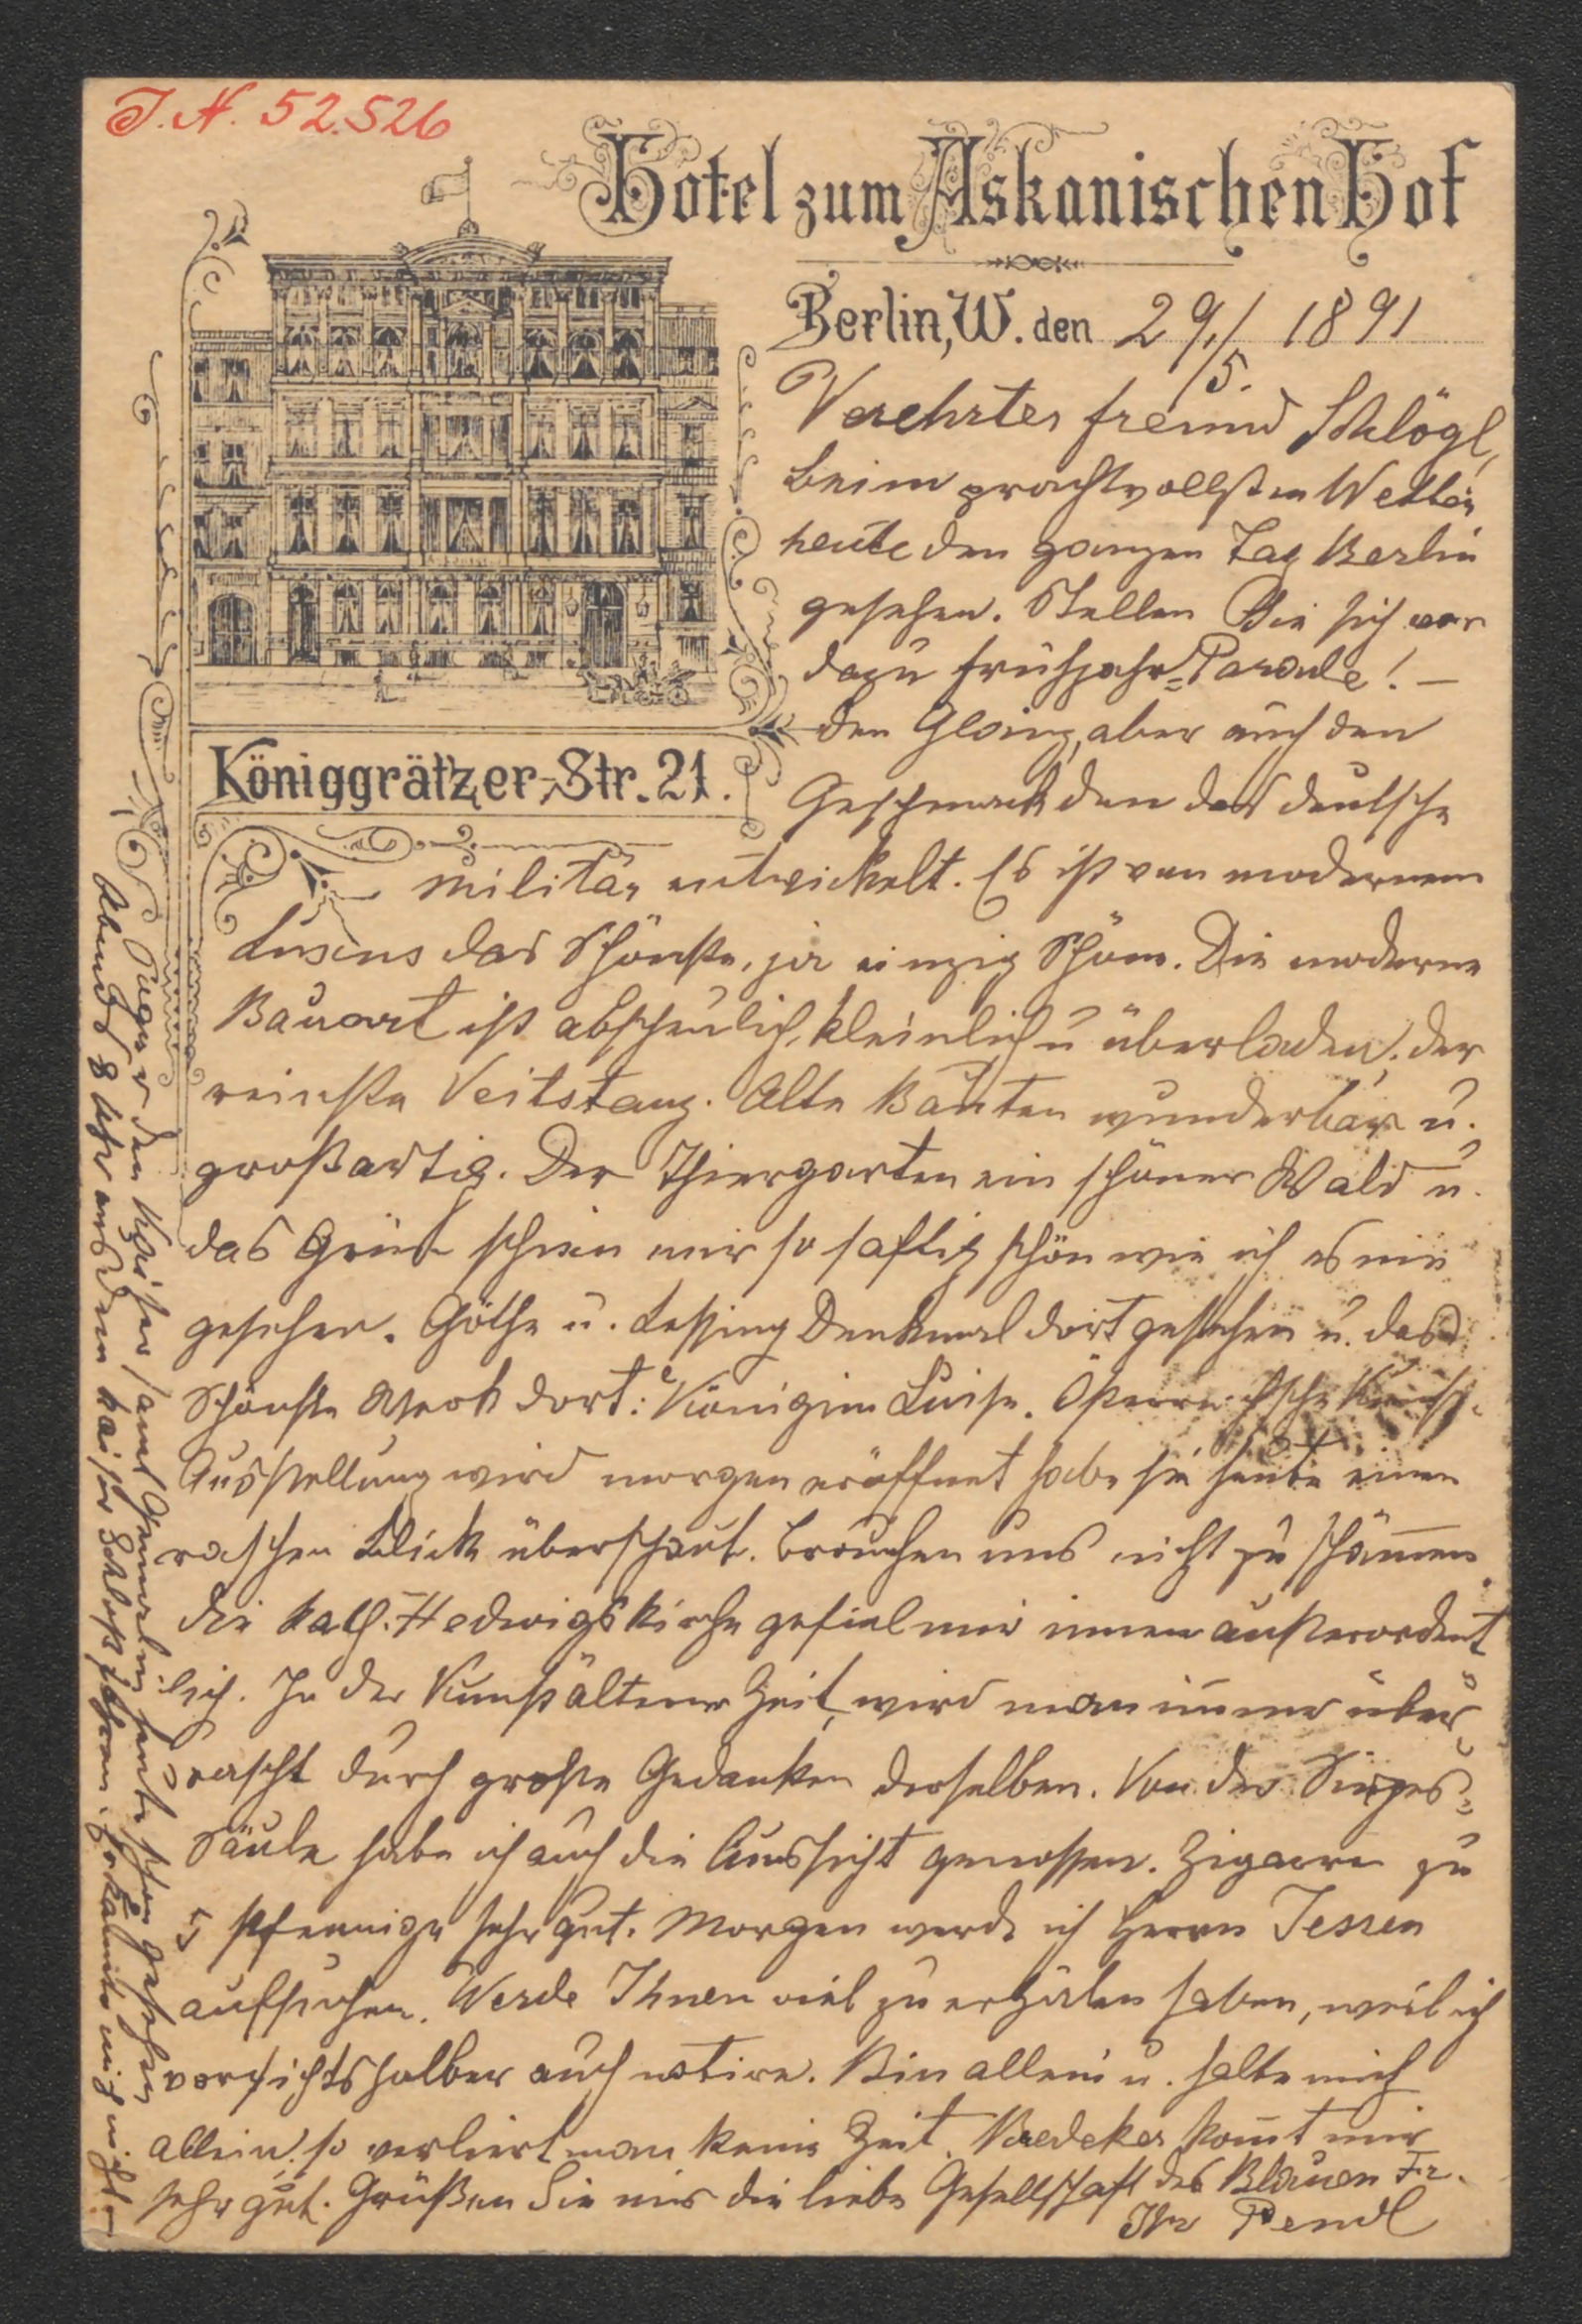 J. N. 52.526
Hotel zum Askanischen Hof
Berlin, W. den 29./5. 1891
Königgrätzer-Str. 21.
Verehrter Freund Schlögl,
beim prachtvollsten Wetter
heute den ganzen Tag Berlin
gesehen. Stellen Sie sich vor
dazu Frühjahr=Parade! —
den Glanz, aber auch den
Geschmack den das deutsche
Militär entwickelt. Es ist von modernem
Luxus das Schönste, ja einzig Schöne. Die moderne
Bauart ist abscheulich, kleinlich u überladen, der
reinste Veitstanz. Alte Bauten wunderbar u.
großartig. Der Thiergarten ein schöner Wald u.
das Grün schien mir so saftig schön wie ich es nie
gesehen. Göthe u. Lessing Denkmal dort gesehen u. das
Schönste Werk dort: Königin Luise. Österreichische Kunst-
Ausstellung wird morgen eröffnet habe sie heute einen
raschen Blick überschaut. Brauchen uns nicht zu schämen.
die kath. Hedwigskirche gefiel mir innen außerordent
lich. In der Kunst älterer Zeit, wird man immer über,
rascht durch große Gedanken derselben. Von der Sieges=
säule habe ich auch die Aussicht genossen. Zigarren zu
5 Pfennige sehr gut. Morgen werde ich Herrn Jessen
aufsuchen. Werde Ihnen viel zu erzählen haben, weil ich
vorsichtshalber auch notire. Bin allein u. halte mich
allein, so verliert man keine Zeit. Baedeker kommt mir
sehr gut. Grüßen Sie mir die liebe Gesellschaft des Blauen Fr.
Ihr Pendl
Sogar den Kaiser samt Gemahlin heute schon gesehen
Abends 8 Uhr aus dem Kaiser Schloß fahren. erkannte mich nicht —